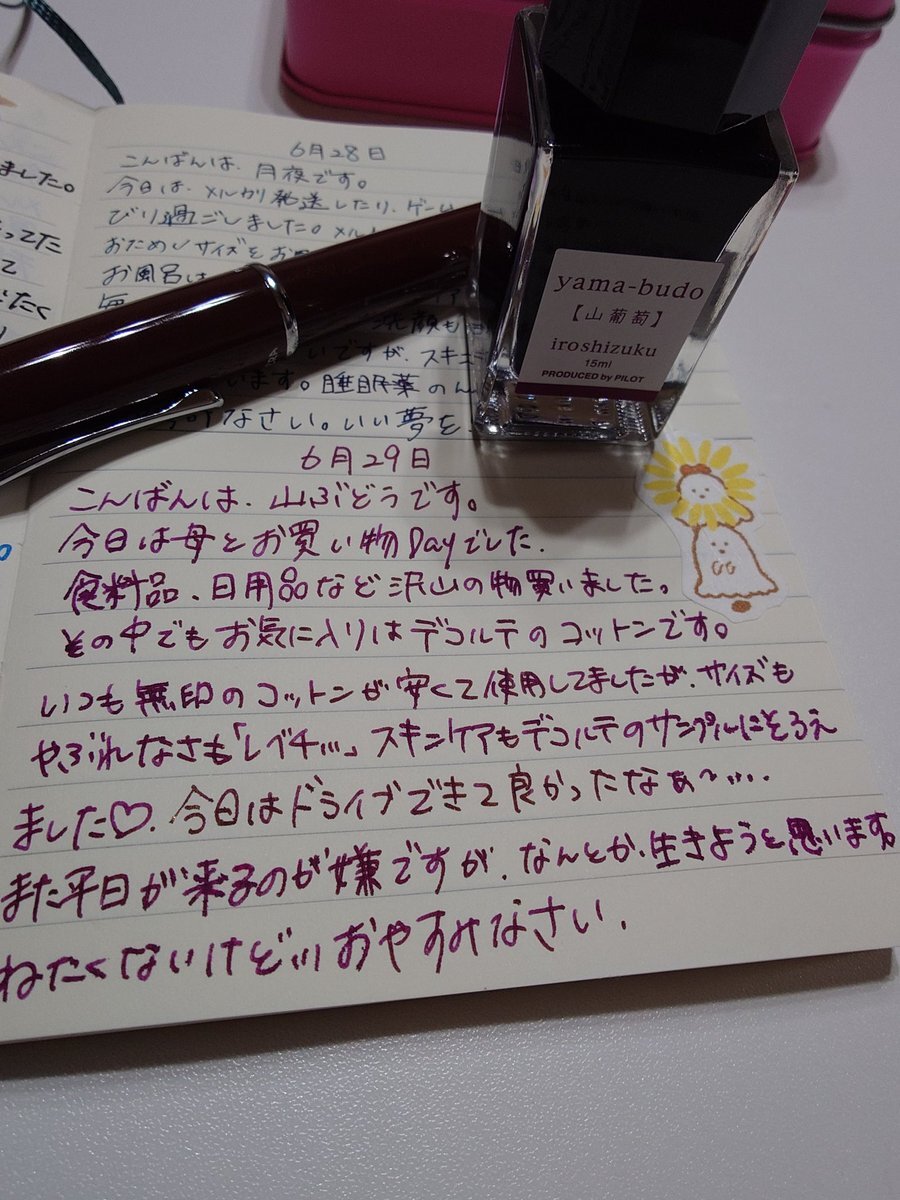 ました。
ってた
て
たく
6月28日
こんばんは、月夜です。
今日は、メルカリ発送したり、ゲーム
びり過ごしました。メル
おためしサイズをお
お風呂は
洗顔も
いですが、スキンケ
います。睡眠薬のん
なさい。いい夢を
6月29日
こんばんは、山ぶどうです。
今日は母とお買い物Dayでした.
食料品、日用品など沢山の物買いました。
その中でもお気に入りはデコルテのコットンです。
いつも無印のコットンが安くて使用してましたが、サイズも
やぶれなさも「レベチ…」スキンケアもデコルテのサンプルにそろえ
ました♡.今日はドライブできて良かったなぁ〜….
また平日が来るのが嫌ですが、なんとか、生きようと思います。
ねたくないけど…おやすみなさい.
yama-budo
【山葡萄】
iroshizuku
15ml
PRODUCED by PILOT